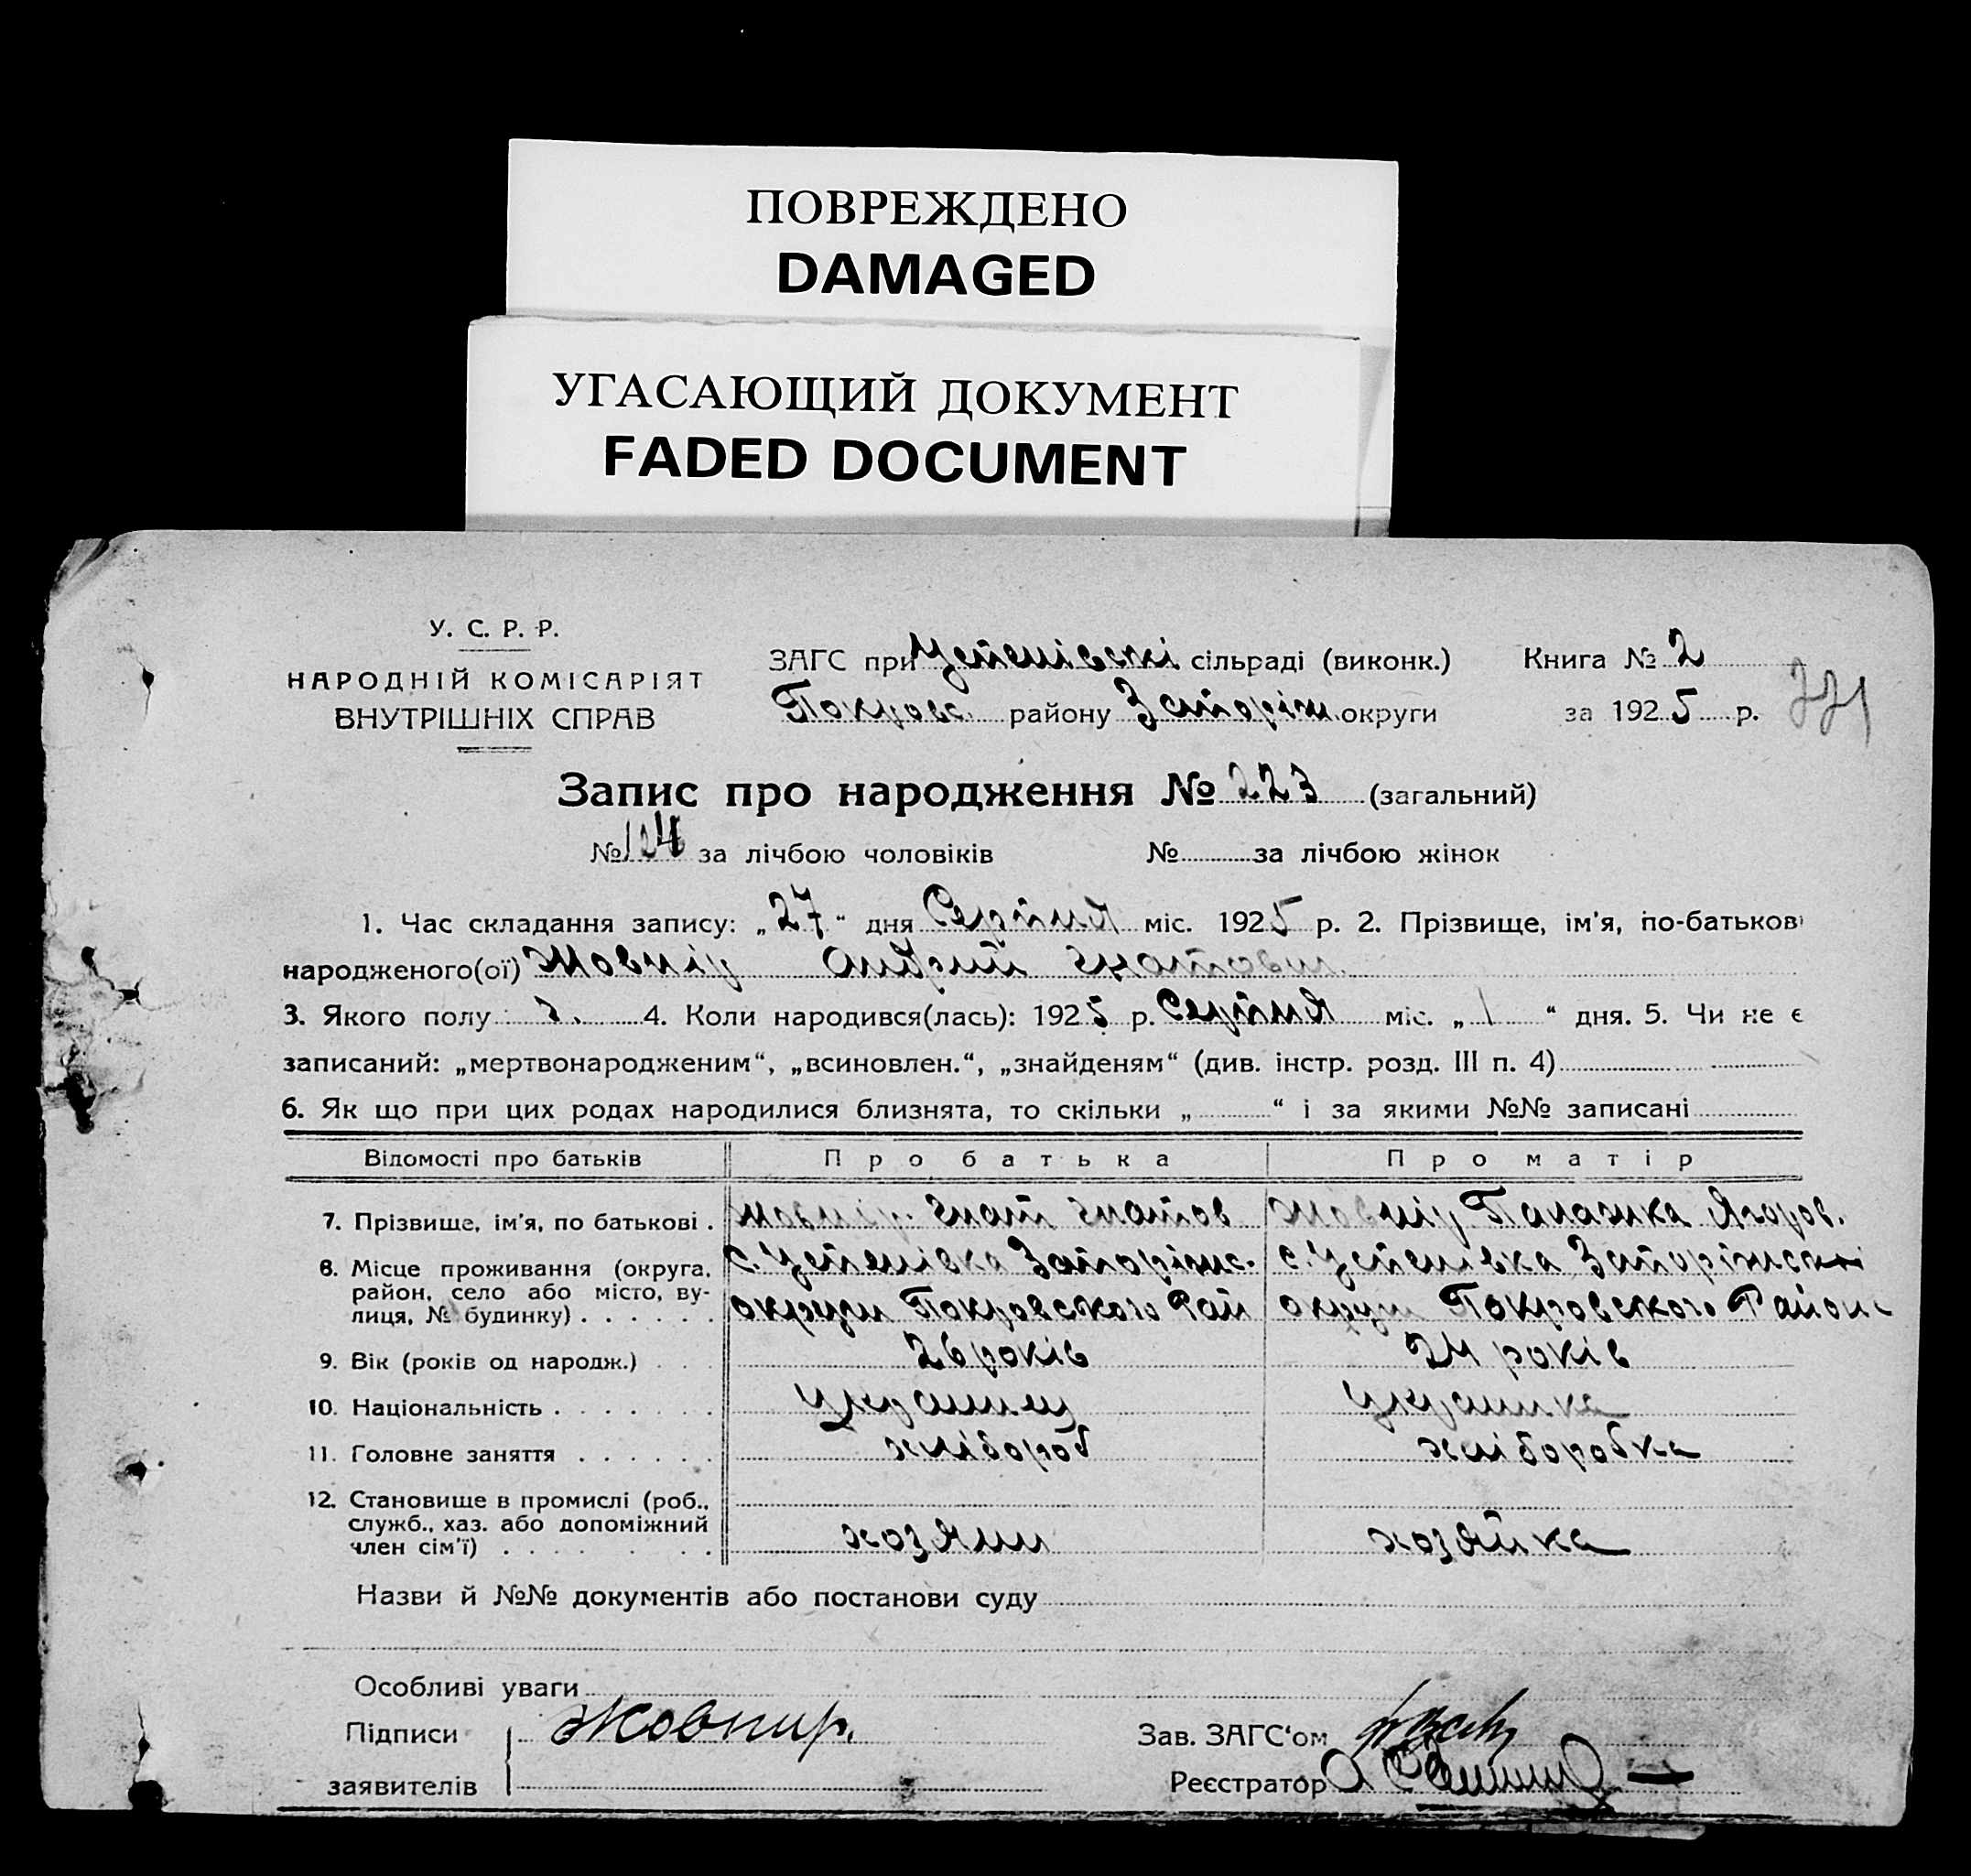 ПОВРЕЖДЕНО
DAMAGED
УГАСАЮЩИЙ ДОКУМЕНТ
FADED DOCUMENT
У. С. Р. Р.
НАРОДНІЙ КОМІСАРІЯТ
ВНУТРІШНІХ СПРАВ
ЗАГС при Успенівскі сільраді (виконк.) Книга № 2
Покровс. району Запоріж. округи за 1925 р.
Запис про народження № 223 (загальний)
№ за лічбою чоловіків № за лічбою жінок
1. Час складання запису: „27“ дня Серпня міс. 1925 р. 2. Прізвище, ім'я, по-батькові
народженого(ої) Жовнір Андрий Гнатович
3. Якого полу 4. Коли народився(лась): 1925 р. Серпня міс. „1“ дня. 5. Чи не є
записаний: „мертвонародженим“, „всиновлен.“, „знайденям“ (див. інстр. розд. III п. 4)
6. Як що при цих родах народилися близнята, то скільки „ “ і за якими №№ записані
Відомості про батьків Про батька Про матір
7. Прізвище, ім'я, по батькові . Жовнір. Гнат Гнатов Жовнір Палажка Ягоров.
8. Місце проживання (округа, район, село або місто, вулиця, № будинку) . . . . . . с. Успенівка Запоріжс. округи Покровского Рай с. Успенівка Запоріжскої округи Покровского Району
9. Вік (років од народж.) . . . 26 років 24 років
10. Національність . . . . . . . Українец Українка
11. Головне заняття . . . . . . хлібороб хліборобка
12. Становище в промислі (роб., служб., хаз. або допоміжний член сім'ї) . . . . . . . хозяин хозяйка
Назви й №№ документів або постанови суду
Особливі уваги
Підписи Жовнир. Зав. ЗАГС'ом
заявителів Реєстратор